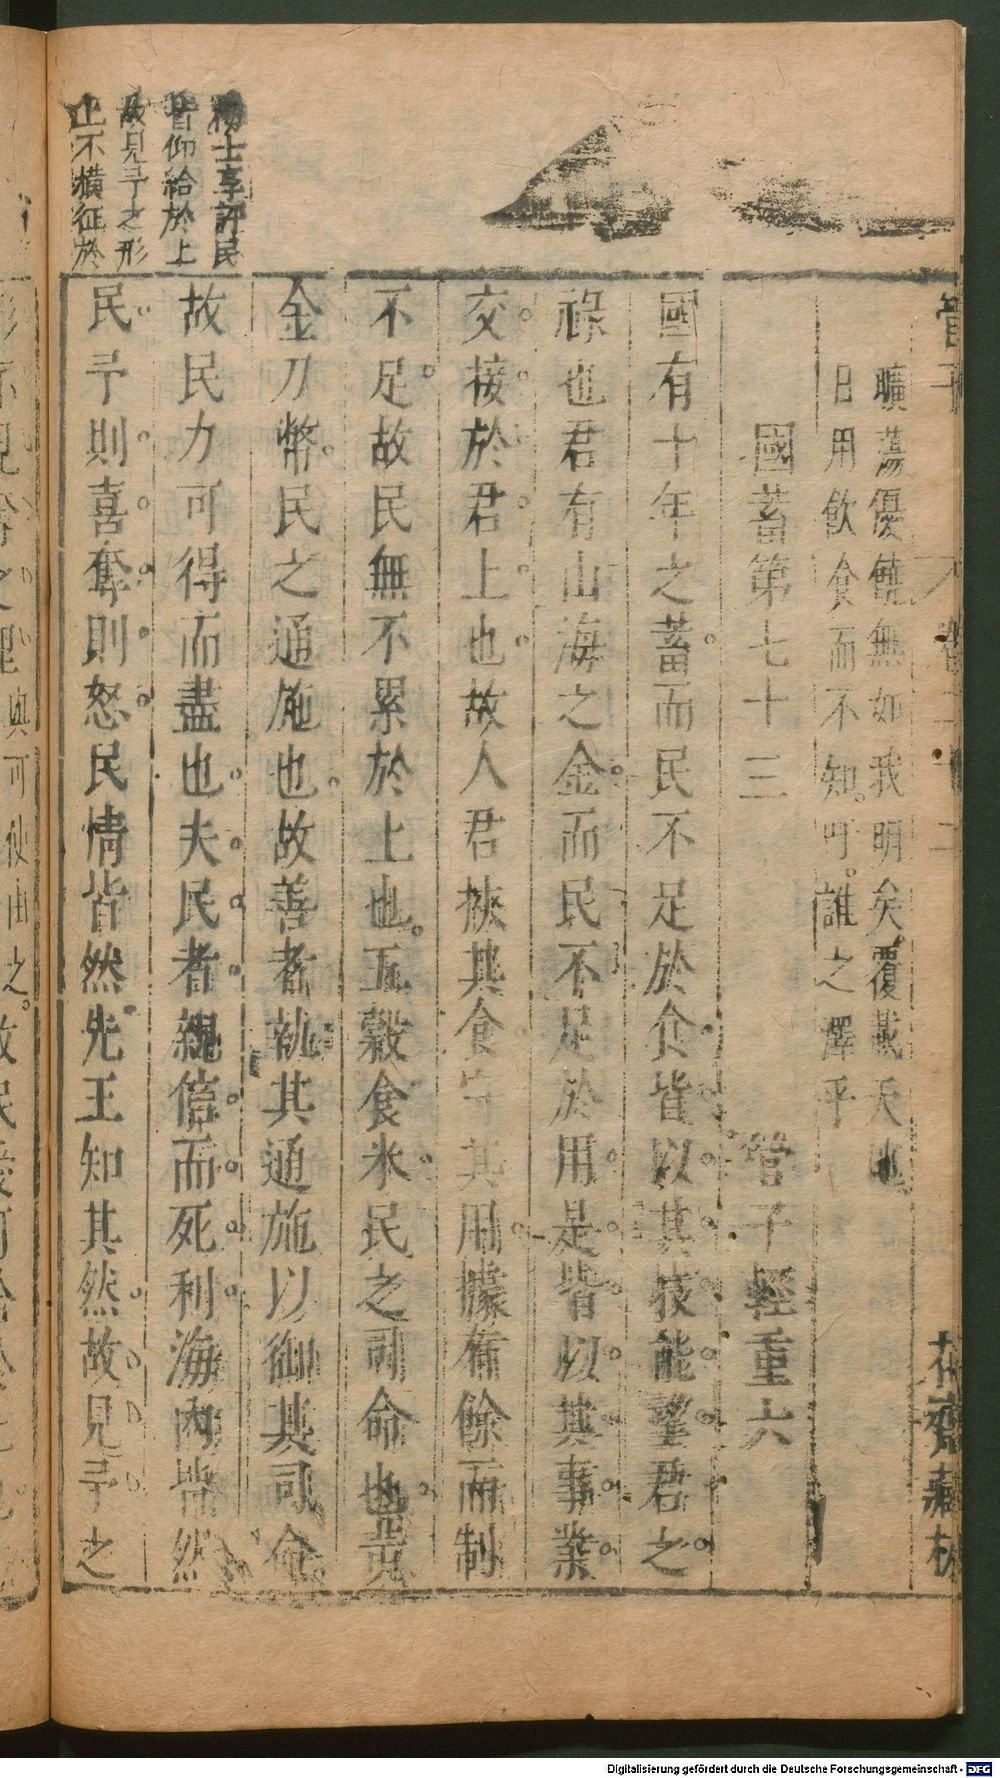 管子
卷二十二
花齋藏板
曠蕩優饒無如我明矣覆載天地
日用飲食而不知吁誰之澤乎
國蓄第七十三
管子輕重六
國有十年之蓄而民不足於食皆以其技能望君之
祿也君有山海之金而民不足於用是皆以其事業
交接於君上也故人君挾其食守其用據有餘而制
不足故民無不累於上也五穀食米民之司命也黃
金刀幣民之通施也故善者執其通施以御其司命
故民力可得而盡也夫民者親信而死利海內皆然
民予則喜奪則怒民情皆然先王知其然故見予之
士享評民
皆仰給於上
故見予之形
止不橫征於
Digitalisierung gefördert durch die Deutsche Forschungsgemeinschaft - DFG